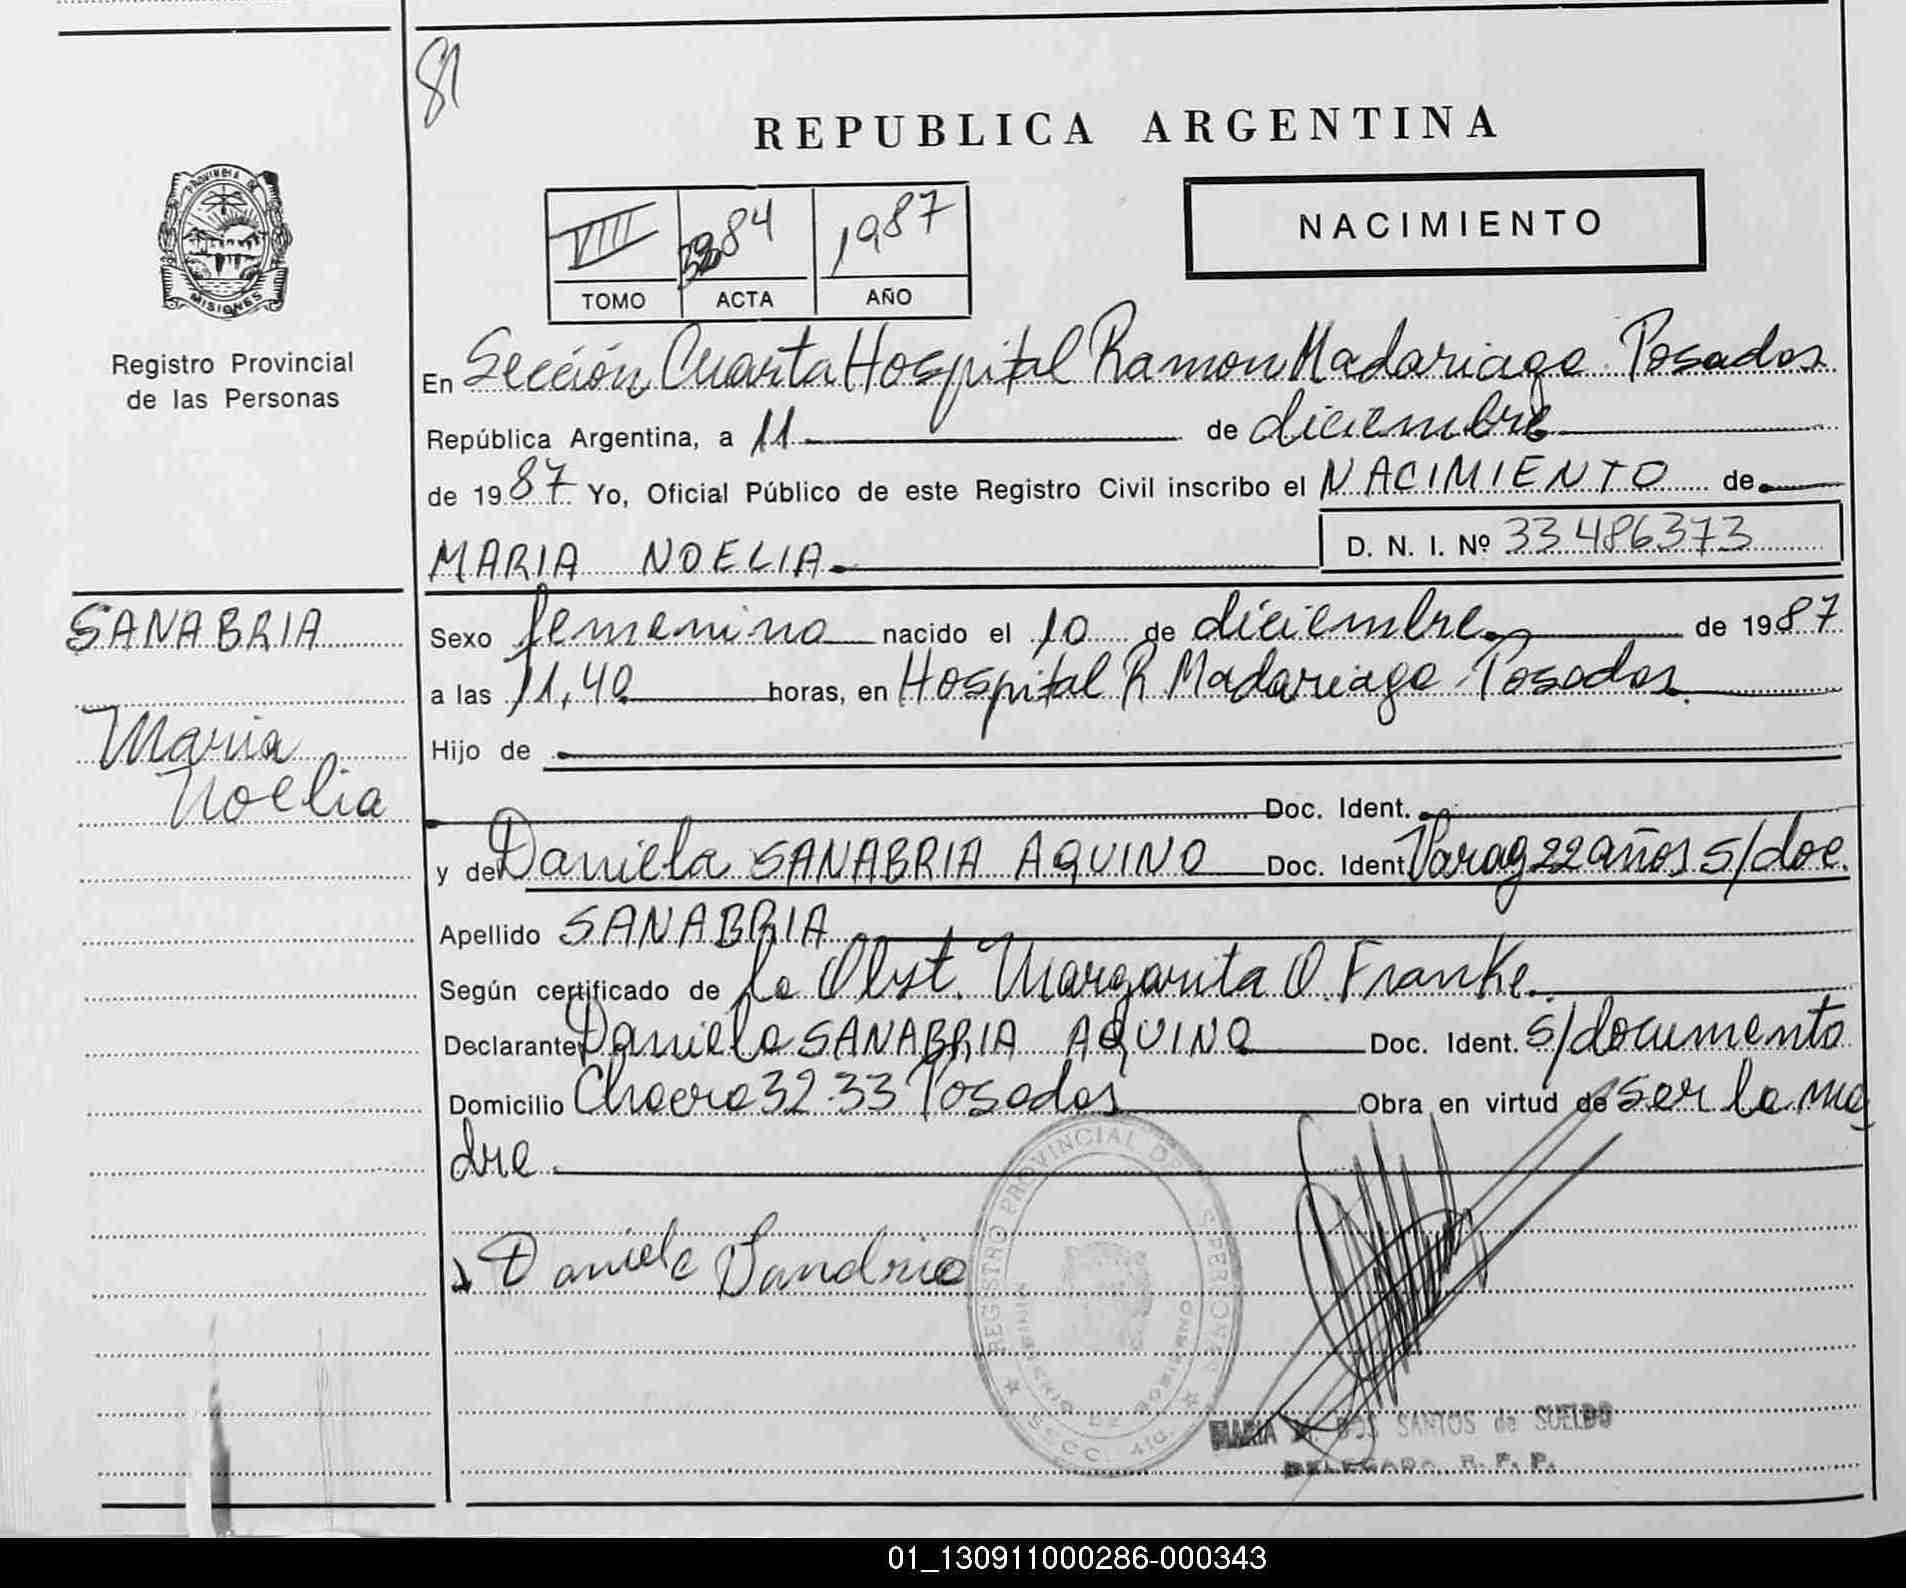 81
REPUBLICA ARGENTINA
PROVINCIA DE
MISIONES
VIII 3284 1987
TOMO ACTA AÑO
NACIMIENTO
Registro Provincial
de las Personas
En Sección Cuarta Hospital Ramon Madariaga Posadas
República Argentina, a 11 de diciembre
de 1987 Yo, Oficial Público de este Registro Civil inscribo el NACIMIENTO de
MARIA NOELIA D. N. I. Nº 33486373
SANABRIA
Maria
Noelia
Sexo femenino nacido el 10 de diciembre de 1987
a las 11,40 horas, en Hospital R Madariaga Posadas.
Hijo de
Doc. Ident.
y de Daniela SANABRIA AQUINO Doc. Ident. Parag 22 años s/doc.
Apellido SANABRIA
Según certificado de la Obst. Margarita O. Franke.
Declarante Daniela SANABRIA AQUINO Doc. Ident. s/documento
Domicilio Chacra 32-33 Posadas Obra en virtud de ser la ma
dre
Daniela Sanabria
REGISTRO PROVINCIAL DE PERSONAS
MINISTERIO DE GOBIERNO
SECC. 4ta.
MARIA DOS SANTOS de SUELDO
DELEGADA R. P. P.
01_130911000286-000343